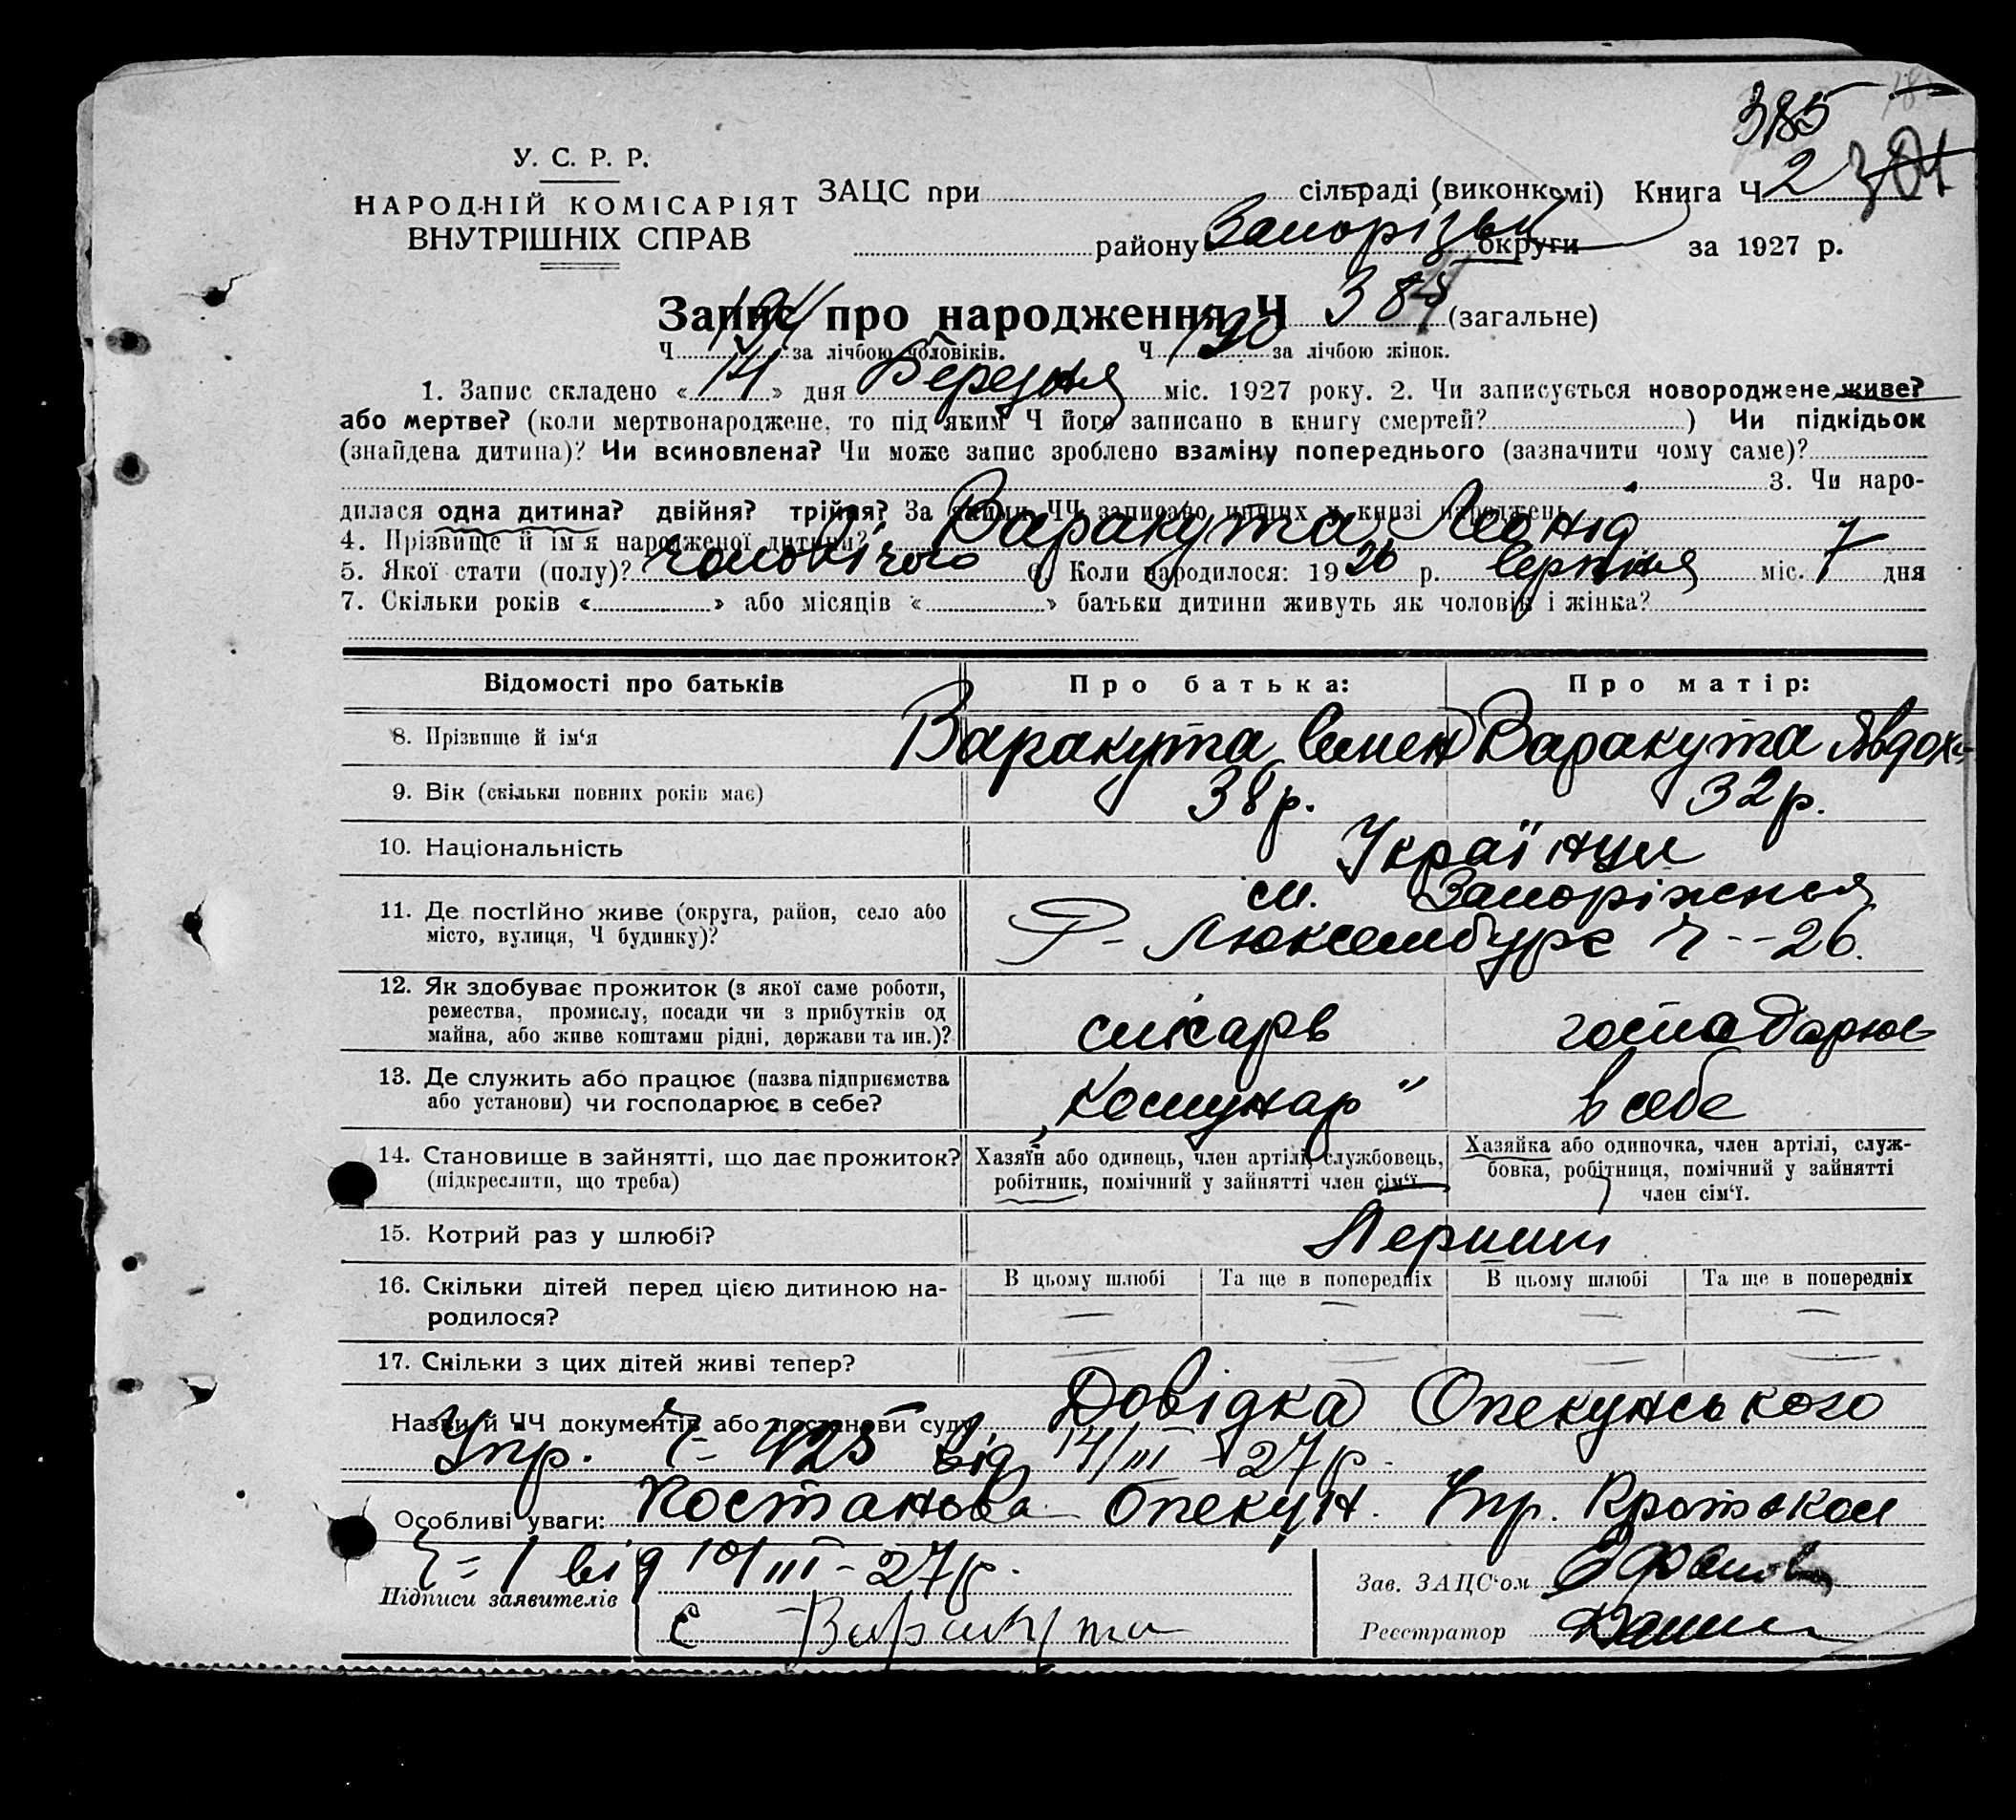 385
У. С. Р. Р.
НАРОДНІЙ КОМІСАРІЯТ
ВНУТРІШНІХ СПРАВ
ЗАЦС при сільраді (виконкомі) Книга Ч 2 301
району Запорізьк округи за 1927 р.
Запис про народження Ч 385 (загальне)
Ч 194 за лічбою чоловіків. Ч 190 за лічбою жінок.
1. Запис складено « 14 » дня Березня міс. 1927 року. 2. Чи записується новороджене живе?
або мертве? (коли мертвонароджене, то під яким Ч його записано в книгу смертей? ) Чи підкідьок
(знайдена дитина)? Чи всиновлена? Чи може запис зроблено взаміну попереднього (зазначити чому саме)?
3. Чи наро-
дилася одна дитина? двійня? трійня? За якими ЧЧ записано инших у книзі народжень
4. Прізвище й ім'я народженої дитини? Варакута Леонід
5. Якої стати (полу)? чоловічого 6. Коли народилося: 1926 р. серпня міс. 7 дня
7. Скільки років « » або місяців « » батьки дитини живуть як чоловік і жінка?
Відомості про батьків Про батька: Про матір:
8. Прізвище й ім'я Варакута Семен Варакута Явдох
9. Вік (скільки повних років має) 38 р. 32 р.
10. Національність Українци
11. Де постійно живе (округа, район, село або місто, вулиця, Ч будинку)? м. Запоріжжя
Р- Люксембург Ч--26.
12. Як здобуває прожиток (з якої саме роботи,
ремества, промислу, посади чи з прибутків од
майна, або живе коштами рідні, держави та ин.)? слюсарь господарює
13. Де служить або працює (назва підприємства
або установи) чи господарює в себе? „Комунар" в себе
14. Становище в зайнятті, що дає прожиток?
(підкреслити, що треба)
Хазяїн або одинець, член артілі, службовець,
робітник, помічний у зайнятті член сім'ї.
Хазяйка або одиночка, член артілі, служ-
бовка, робітниця, помічний у зайнятті
член сім'ї.
15. Котрий раз у шлюбі? Перший
16. Скільки дітей перед цією дитиною на-
родилося?
В цьому шлюбі Та ще в попередніх В цьому шлюбі Та ще в попередніх
— — — —
17. Скільки з цих дітей живі тепер? — — — —
Назви й ЧЧ документів або постанови суду Довідка Опекунського
Упр. Ч- 425 від 14/III - 27 р.
Особливі уваги: Постанова Опекун. Упр. Протокол
Ч=1 від 10/III-27 р.
Підписи заявителів Зав. ЗАЦС'ом
Є Варакута Реєстратор